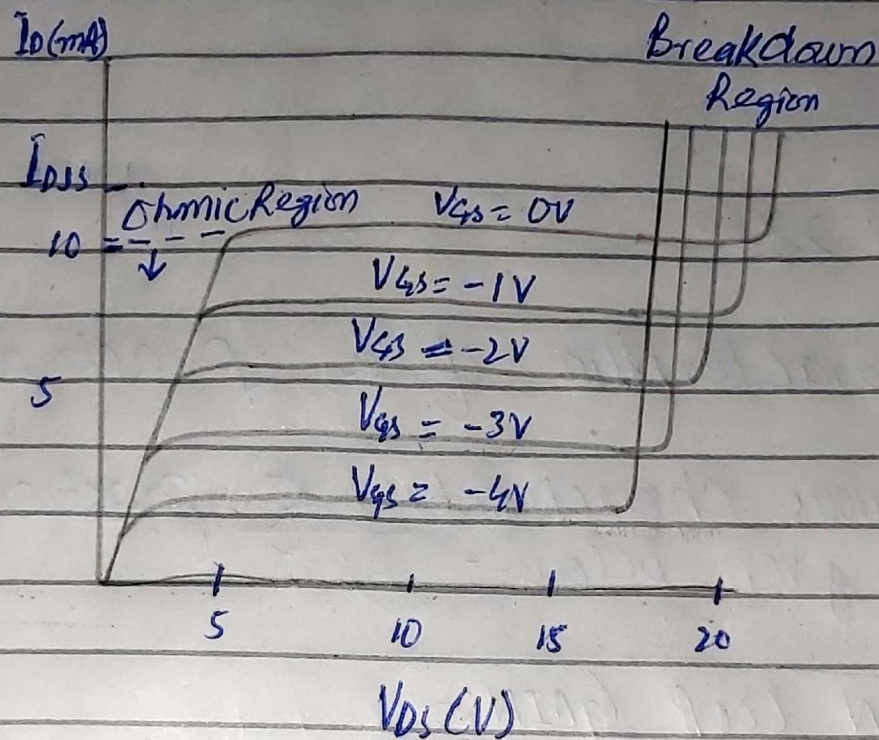 ID(mA)
Breakdown
Region
IDSS
Ohmic Region
VGS = 0V
10
↓
VGS = -1V
VGS = -2V
5
VGS = -3V
VGS = -4V
5
10
15
20
VDS (V)